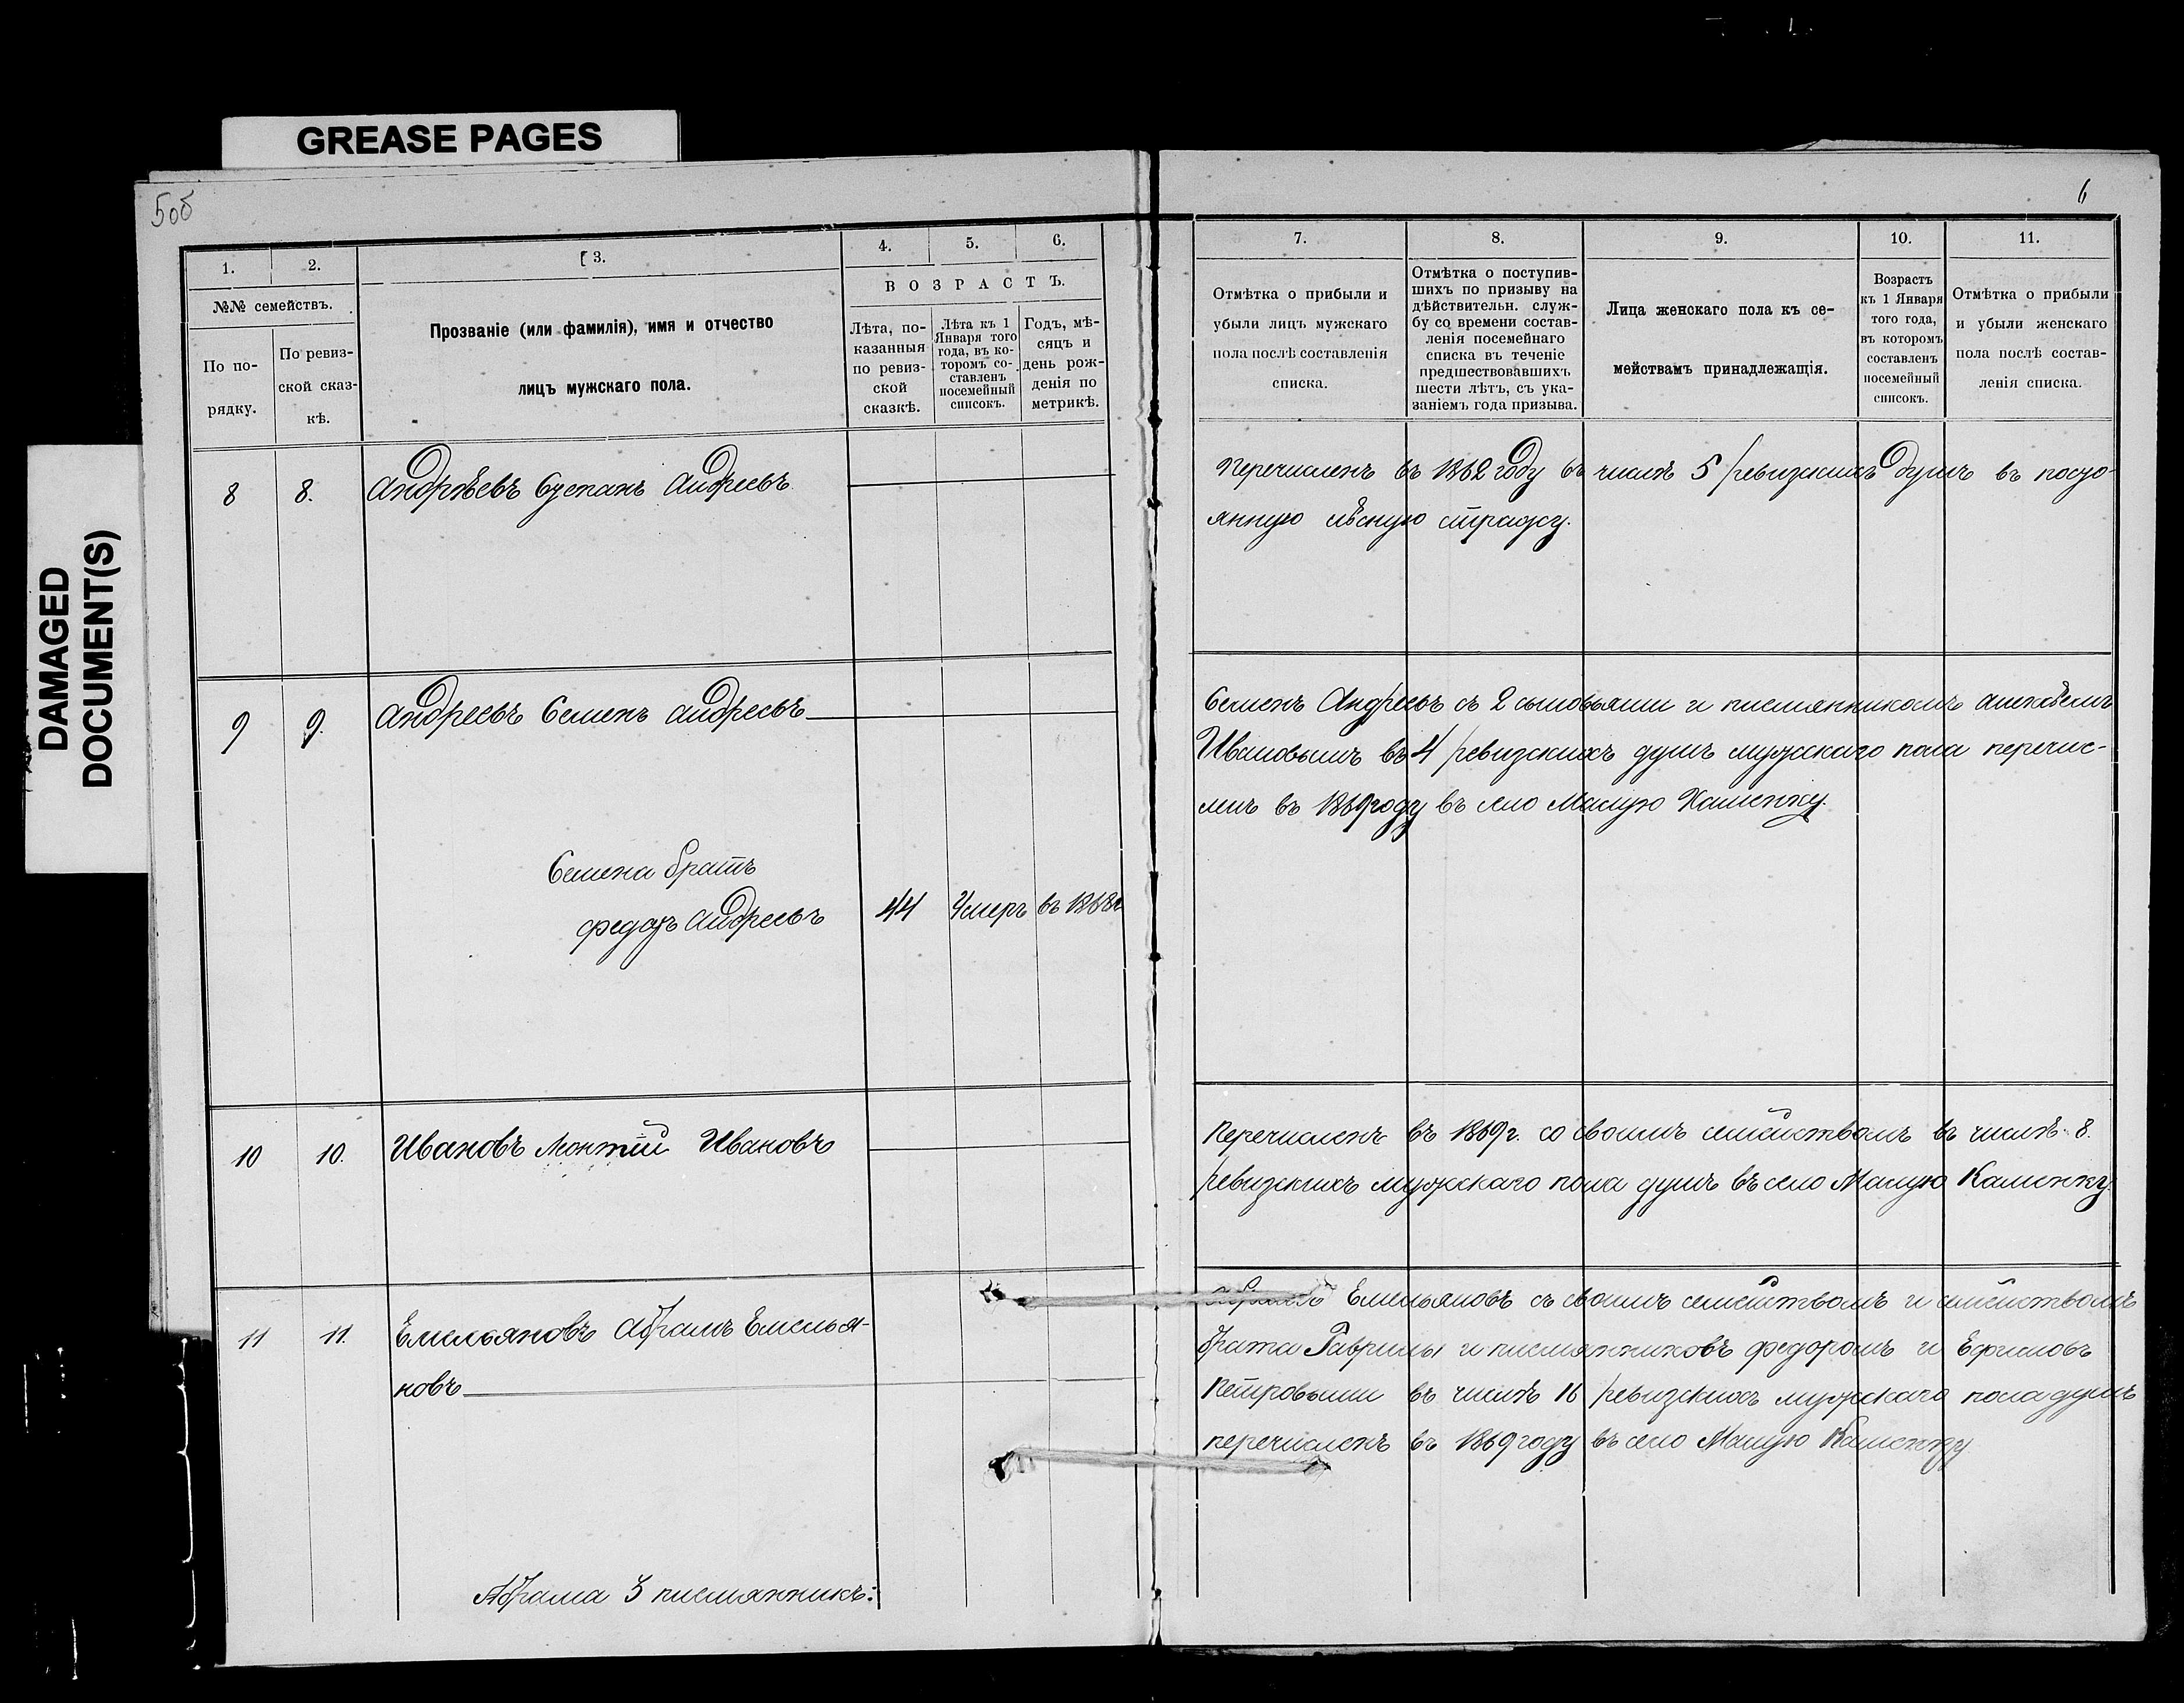 GREASE PAGES
DAMAGED
DOCUMENT(S)
5об
6
1.
2.
3.
4.
5.
6.
№№ семействъ.
По по-
рядку.
По ревиз-
ской сказ-
кѣ.
Прозваніе (или фамилія), имя и отчество
лицъ мужскаго пола.
ВОЗРАСТЪ.
Лѣта, по-
казанныя
по ревиз-
ской
сказкѣ.
Лѣта къ 1
Января того
года, въ ко-
торомъ со-
ставленъ
посемейный
списокъ.
Годъ, мѣ-
сяцъ и
день рож-
денія по
метрикѣ.
7.
8.
9.
10.
11.
Отмѣтка о прибыли и
убыли лицъ мужскаго
пола послѣ составленія
списка.
Отмѣтка о поступив-
шихъ по призыву на
дѣйствительн. служ-
бу со времени состав-
ленія посемейнаго
списка въ теченіе
предшествовавшихъ
шести лѣтъ, съ ука-
заніемъ года призыва.
Лица женскаго пола къ се-
мействамъ принадлежащія.
Возрастъ
къ 1 Января
того года,
въ которомъ
составленъ
посемейный
списокъ.
Отмѣтка о прибыли
и убыли женскаго
пола послѣ состав-
ленія списка.
8 8. Андрѣевъ Степанъ Андреевъ
Перечисленъ въ 1862 году въ числѣ 5 ревизскихъ душъ въ посто-
янную лѣсную стражу.
9 9. Андреевъ Семенъ Андреевъ
Семенъ Андреевъ съ 2 сыновьями и племянникомъ
Ивановымъ въ 4 ревизскихъ душъ мужскаго пола перечис-
ленъ въ 1869 году въ село Малую Каменку.
Семена братъ
Федоръ Андреевъ 44 Умеръ въ 1868 г
10 10. Ивановъ Монтій Ивановъ
Перечисленъ въ 1869 г. со своимъ семействомъ въ числѣ 8.
ревизскихъ мужскаго пола душъ въ село Малую Каменку
11 11. Емельяновъ Абрамъ Емелья-
новъ
Емельяновъ съ своимъ семействомъ и семействомъ
брата Гаврилы и племянниковъ Федоромъ и Ефимовъ
Петровыми въ числѣ 16 ревизскихъ мужскаго пола душъ
перечисленъ въ 1869 году въ село Малую Каменку
Абрама 3 племянникъ: